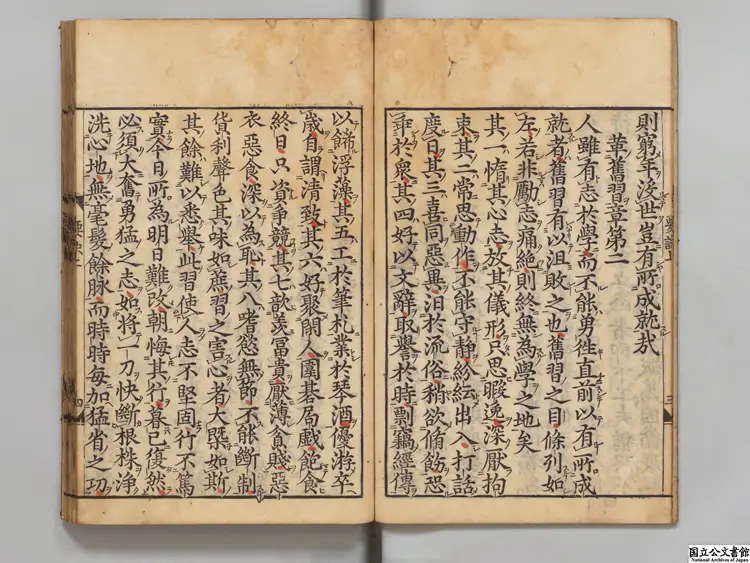 則窮年沒世豈有所成就哉
革舊習章第二
人雖有志於學而不能勇徃直前以有所成
就者舊習有以沮敗之也舊習之目條列如
左若非勵志痛絶則終無為學之地矣
其一惰其心志放其儀形只思暇逸深厭拘
束其二常思動作不能守静紛紜出入打話
度日其三喜同惡異汨於流俗稍欲脩飭恐
乖於衆其四好以文辭取譽於時剽竊經傳
以餙浮藻其五工於筆札業於琴酒優游卒
歳自謂清致其六好聚閑人圍碁局戯飽食
終日只資爭競其七歆羨冨貴厭薄貧賤惡
衣惡食深以為恥其八嗜慾無節不能斷制
貨利聲色其味如蔗習之害心者大槩如斯
其餘難以悉舉此習使人志不堅固行不篤
實今日所為明日難改朝悔其行暮已復然
必須大奮勇猛之志如將一刀快斷根株浄
洗心地無毫髮餘脉而時時每加猛省之功
国立公文書館
National Archives of Japan